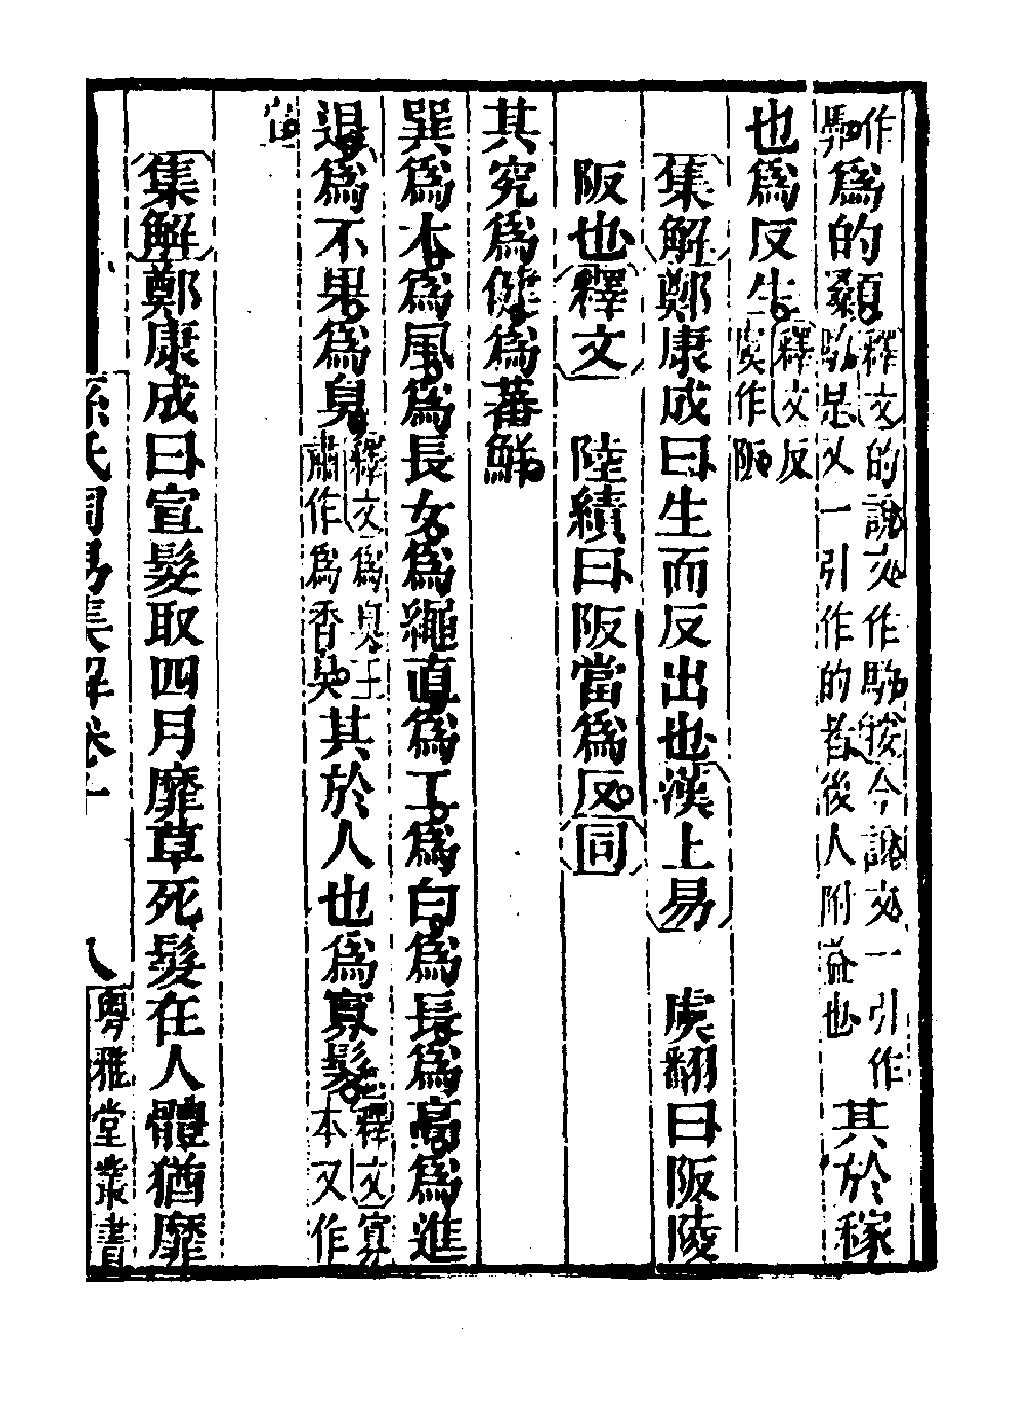 作馵爲的顙釋文的說文作馰按今說文一引作馰是以一引作的者後人附益也其於稼
也爲反生釋文反虞作阪
集解鄭康成曰生而反出也漢上易　虞翻曰阪陵
阪也釋文　陸績曰阪當爲反同
其究爲健爲蕃鮮
巽爲木爲風爲長女爲繩直爲工爲白爲長爲高爲進
退爲不果爲臭釋文爲臭王肅作爲香臭其於人也爲寡髮釋文寡本又作
宣
集解鄭康成曰宣髮取四月靡草死髮在人體猶靡
孫氏周易集解卷十　八　粵雅堂叢書